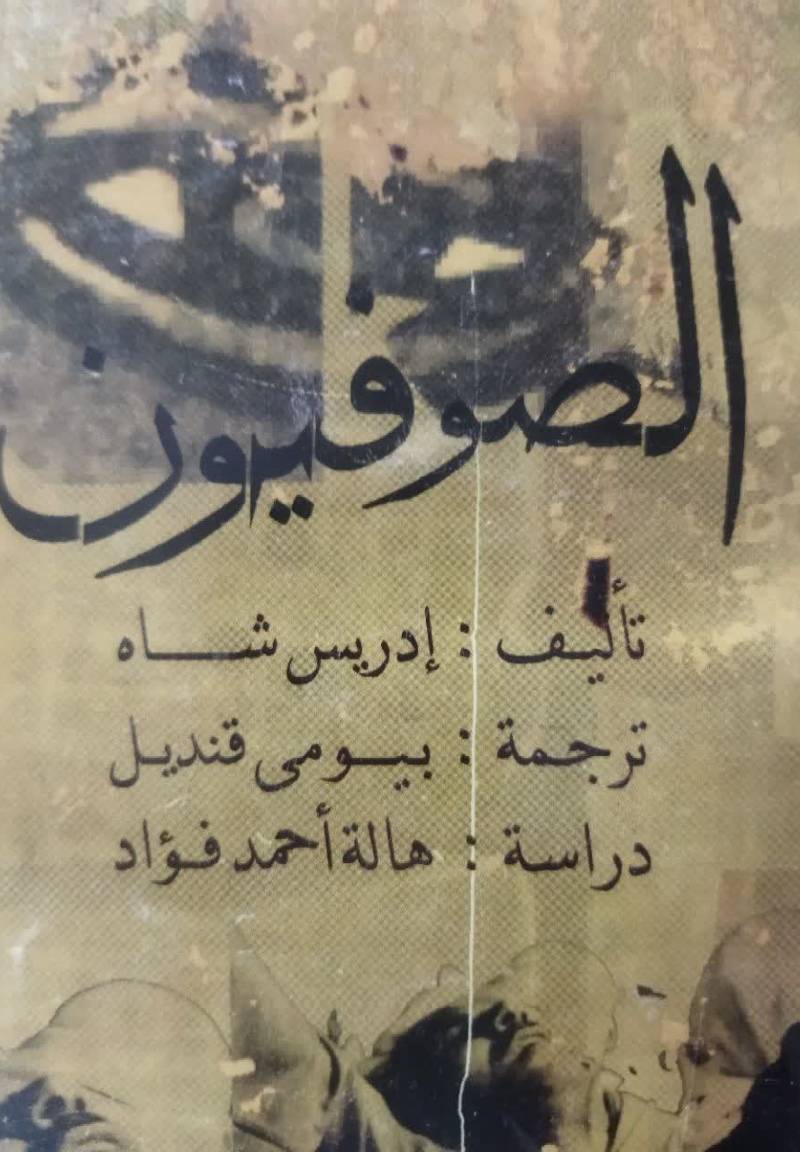 الصوفيون
تأليف : إدريس شاه
ترجمة : بيومى قنديل
دراسة : هالة أحمد فؤاد